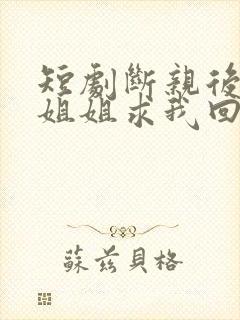 短劇斷親後
姐姐求我回
蘇茲貝格